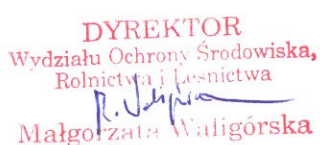 DYREKTOR
Wydziału Ochrony Środowiska,
Rolnictwa i Leśnictwa
Małgorzata Waligórska